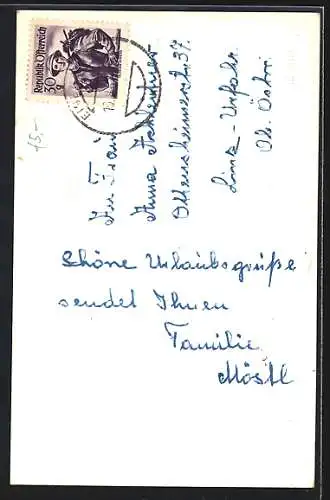 Republik Österreich
30 g
15.-
An Frau
Anna
37.
Linz - Urfahr
Ob. Östr.
Schöne Urlaubsgrüße
sendet Ihnen
Familie
Möstl